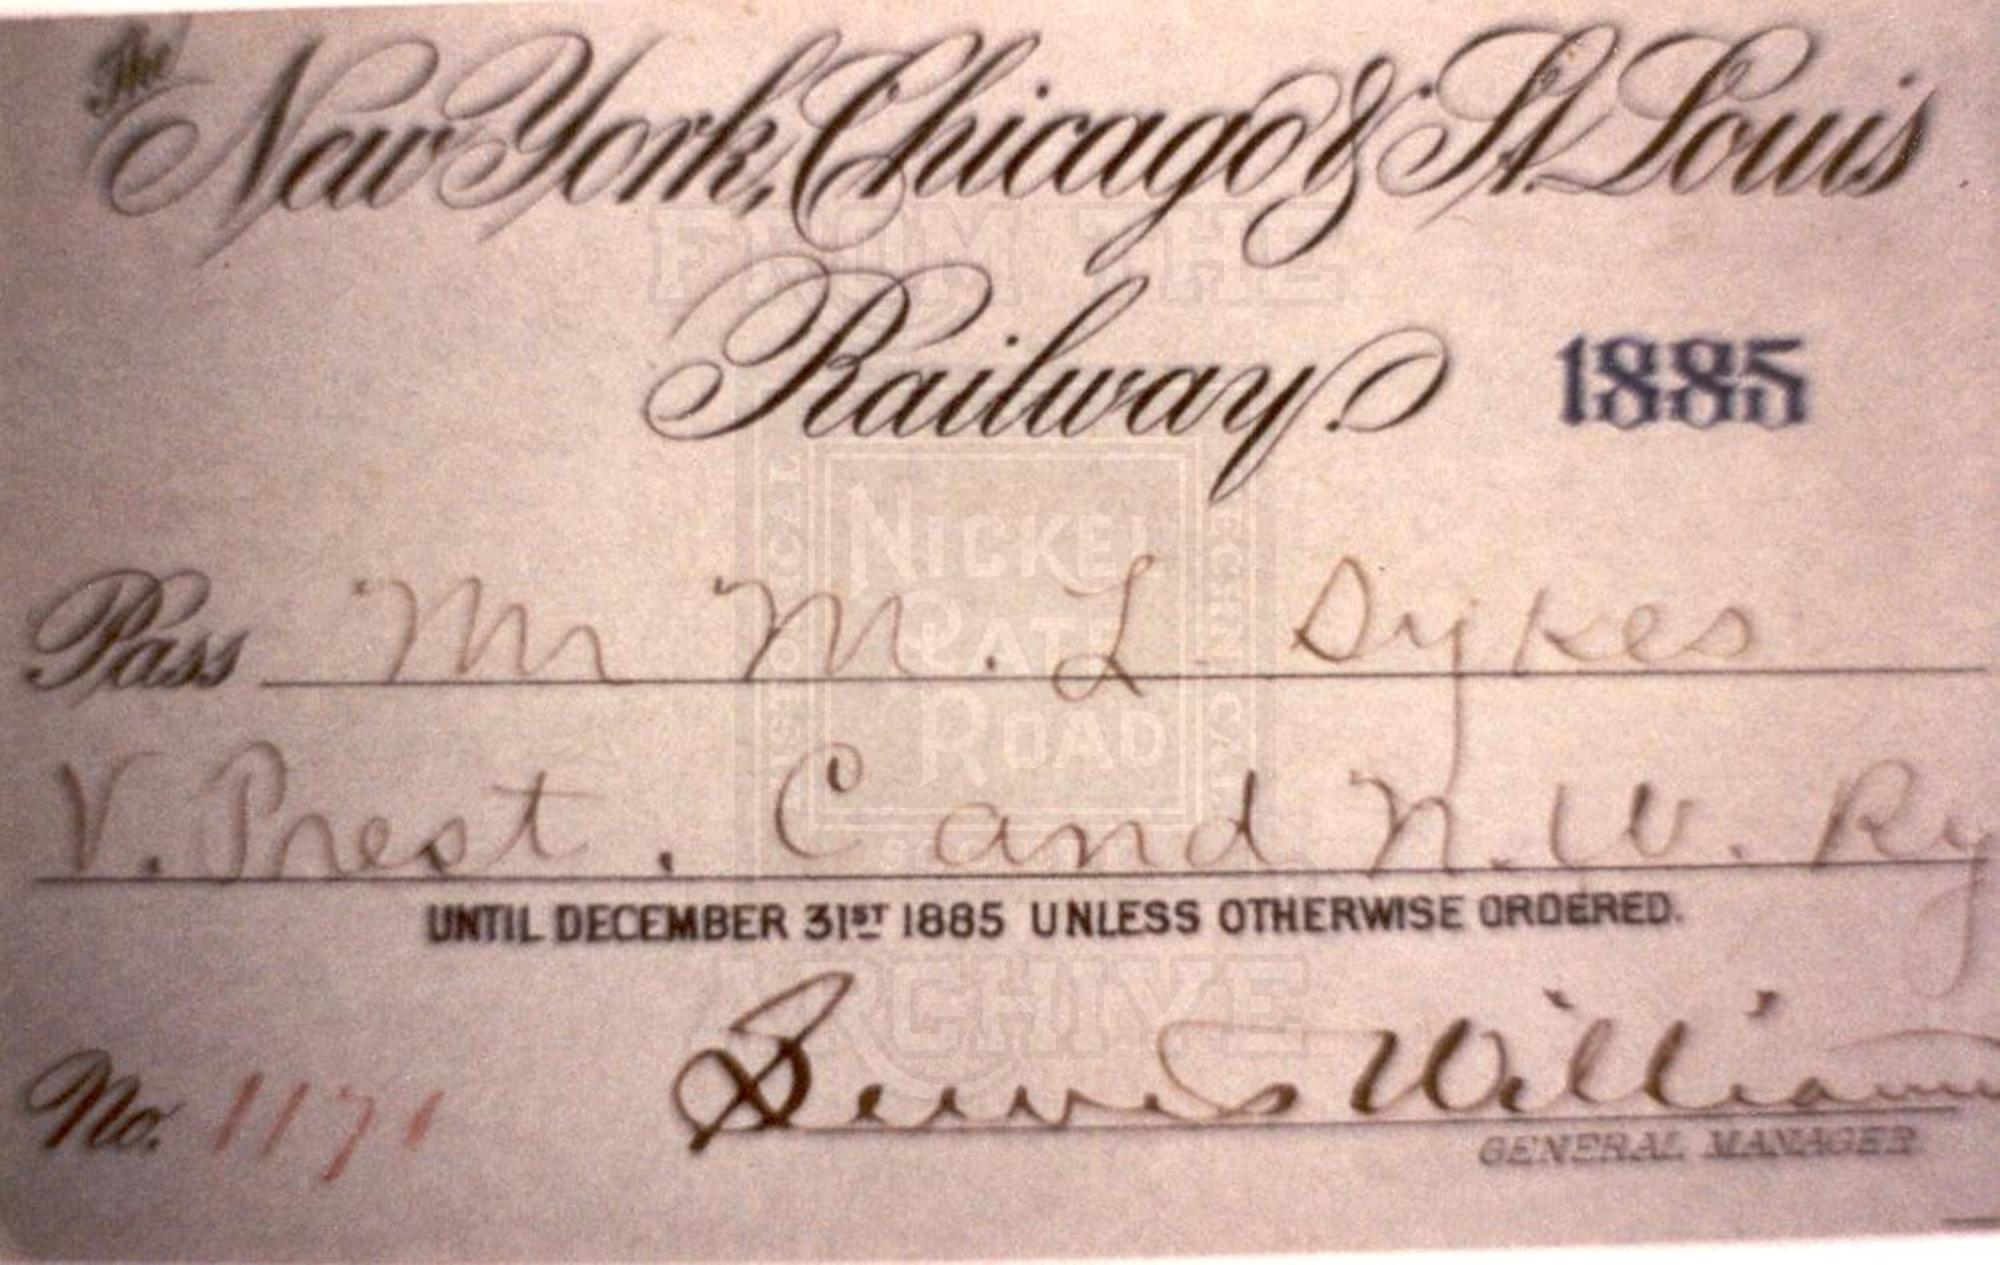 The New York, Chicago & St. Louis
Railway. 1885
Pass Mr M. L. Dykes
V. Prest. C and N. W. Ry
UNTIL DECEMBER 31ST 1885 UNLESS OTHERWISE ORDERED.
No. 1171 Lewis Williams
GENERAL MANAGER
FROM THE
NICKEL
PLATE
ROAD
HISTORICAL
TECHNICAL
SOCIETY
ARCHIVE